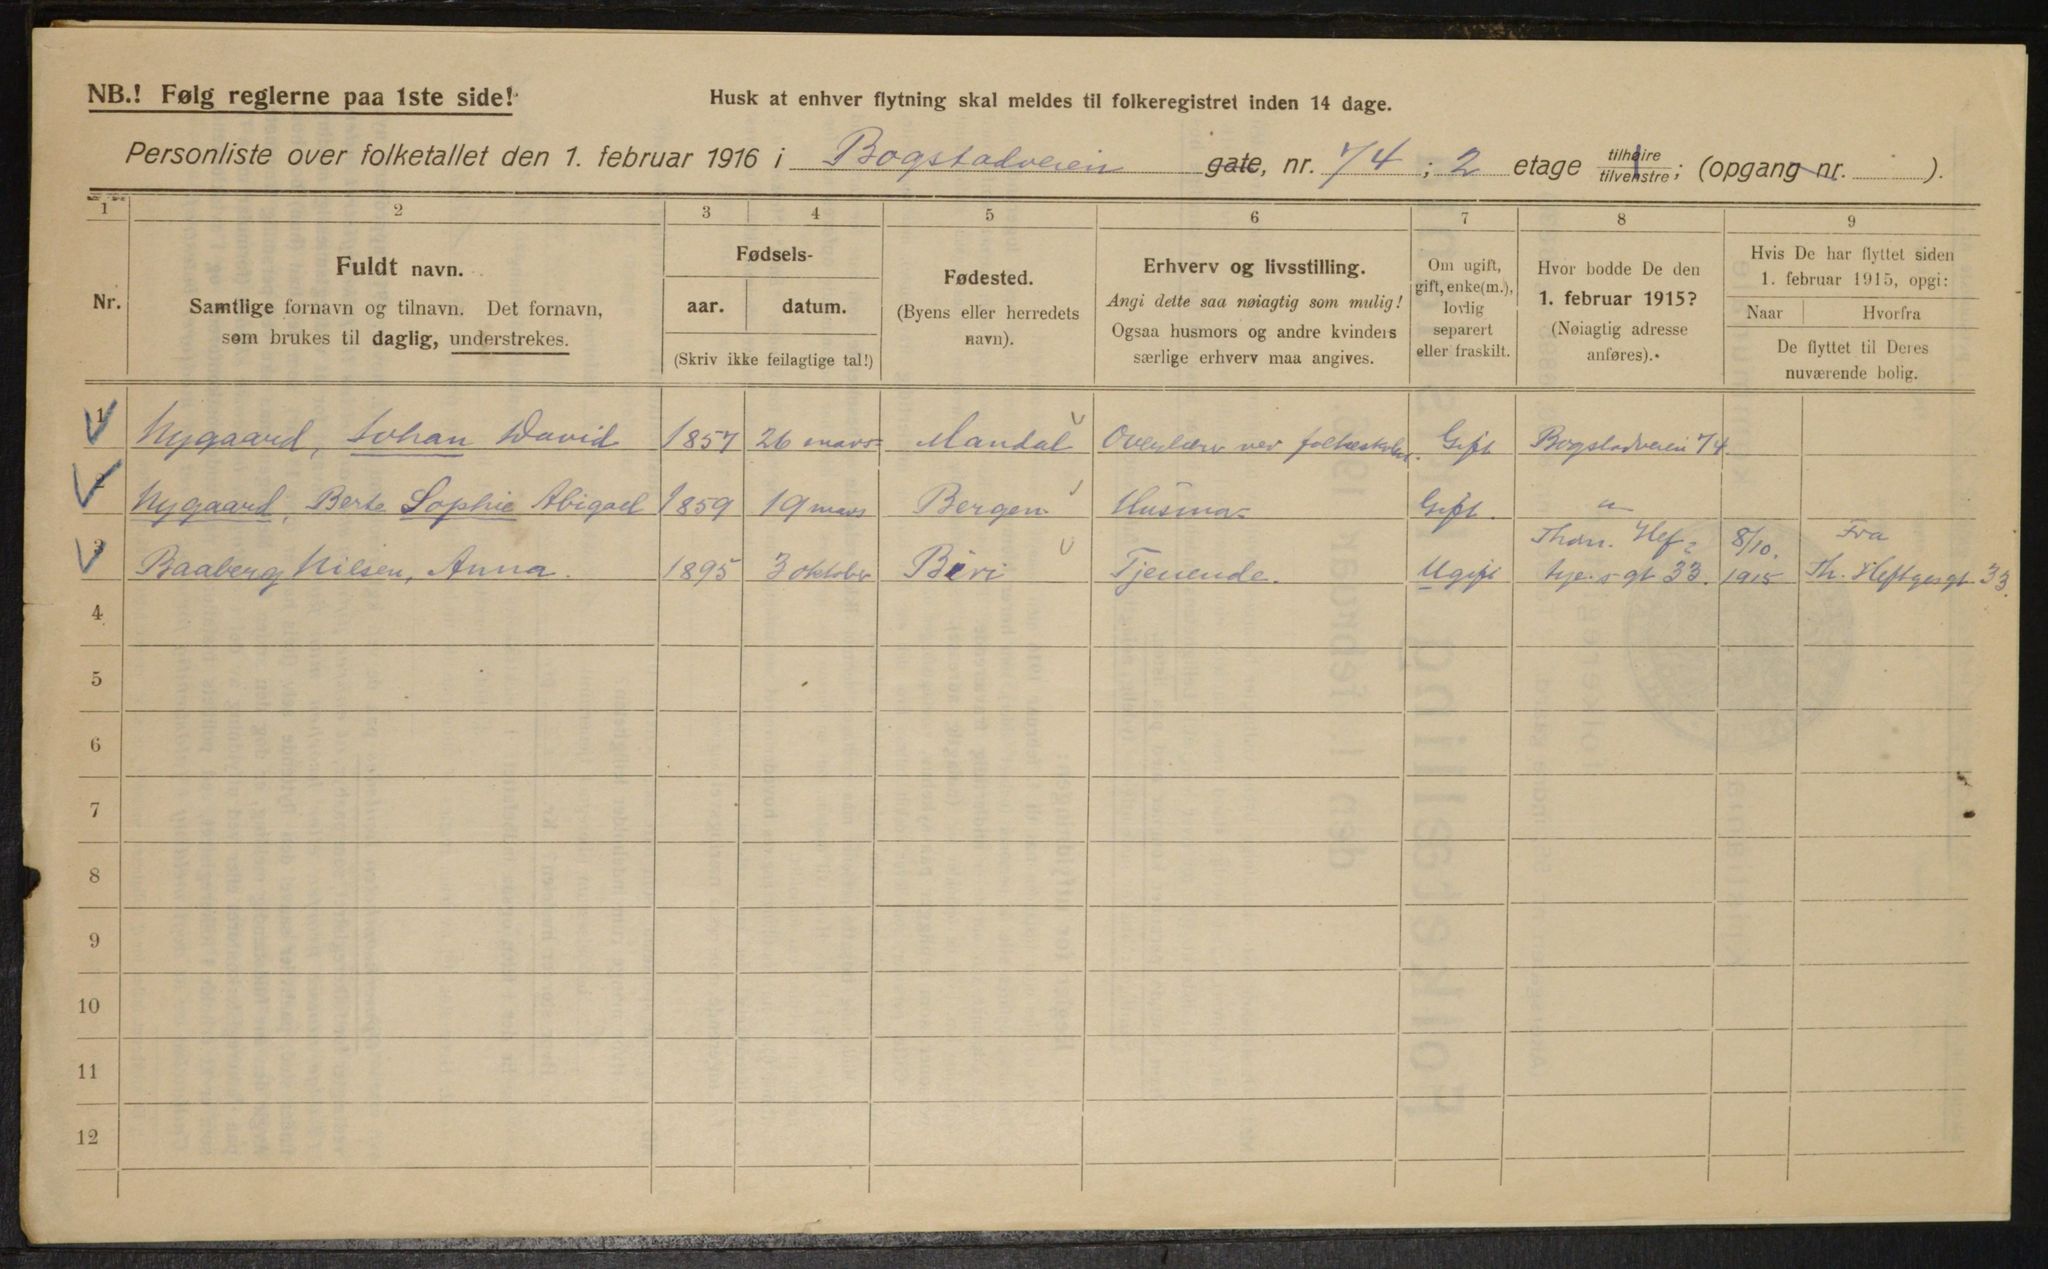 NB.! Følg reglerne paa 1ste side!
Husk at enhver flytning skal meldes til folkeregistret inden 14 dage.
Personliste over folketallet den 1. februar 1916 i Bogstadveien gate, nr. 74 ; 2 etage tilhøire tilvenstre ; (opgang nr. ).
1 2 3 4 5 6 7 8 9
Nr.
Fuldt navn.
Samtlige fornavn og tilnavn. Det fornavn,
som brukes til daglig, understrekes.
Fødsels-
aar. datum.
(Skriv ikke feilagtige tal!)
Fødested.
(Byens eller herredets
navn).
Erhverv og livsstilling.
Angi dette saa nøiagtig som mulig!
Ogsaa husmors og andre kvinders
særlige erhverv maa angives.
Om ugift,
gift, enke(m.),
lovlig
separert
eller fraskilt.
Hvor bodde De den
1. februar 1915?
(Nøiagtig adresse
anføres).
Hvis De har flyttet siden
1. februar 1915, opgi:
Naar Hvorfra
De flyttet til Deres
nuværende bolig.
1 Nygaard, Johan David 1857 26 mars Mandal Overlærer ved folkeskolen. Gift Bogstadveien 74
2 Nygaard, Berte Sophie Abigael 1859 19 mars Bergen Husmor Gift. "
3 Baaberg Nilsen, Anna. 1895 3 oktober Biri Tjenende. Ugift Thom. Hef- tyes gt 33. 8/10. 1915 Fra Th. Heftyesgt 33.
4
5
6
7
8
9
10
11
12